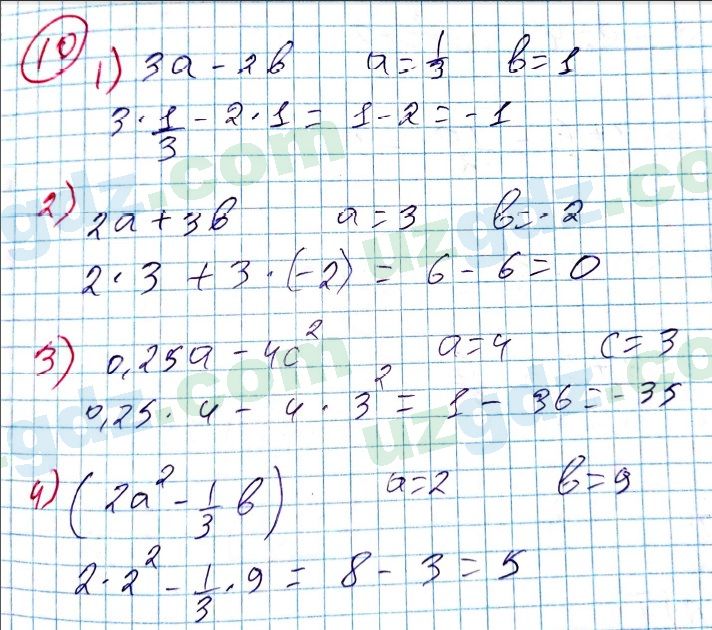 10
1) 3a - 2b a = 1/3 b = 1
3 · 1/3 - 2 · 1 = 1 - 2 = -1
2) 2a + 3b a = 3 b = -2
2 · 3 + 3 · (-2) = 6 - 6 = 0
3) 0,25a - 4c² a = 4 c = 3
0,25 · 4 - 4 · 3² = 1 - 36 = -35
4) (2a² - 1/3 b) a = 2 b = 9
2 · 2² - 1/3 · 9 = 8 - 3 = 5
uzgdz.com